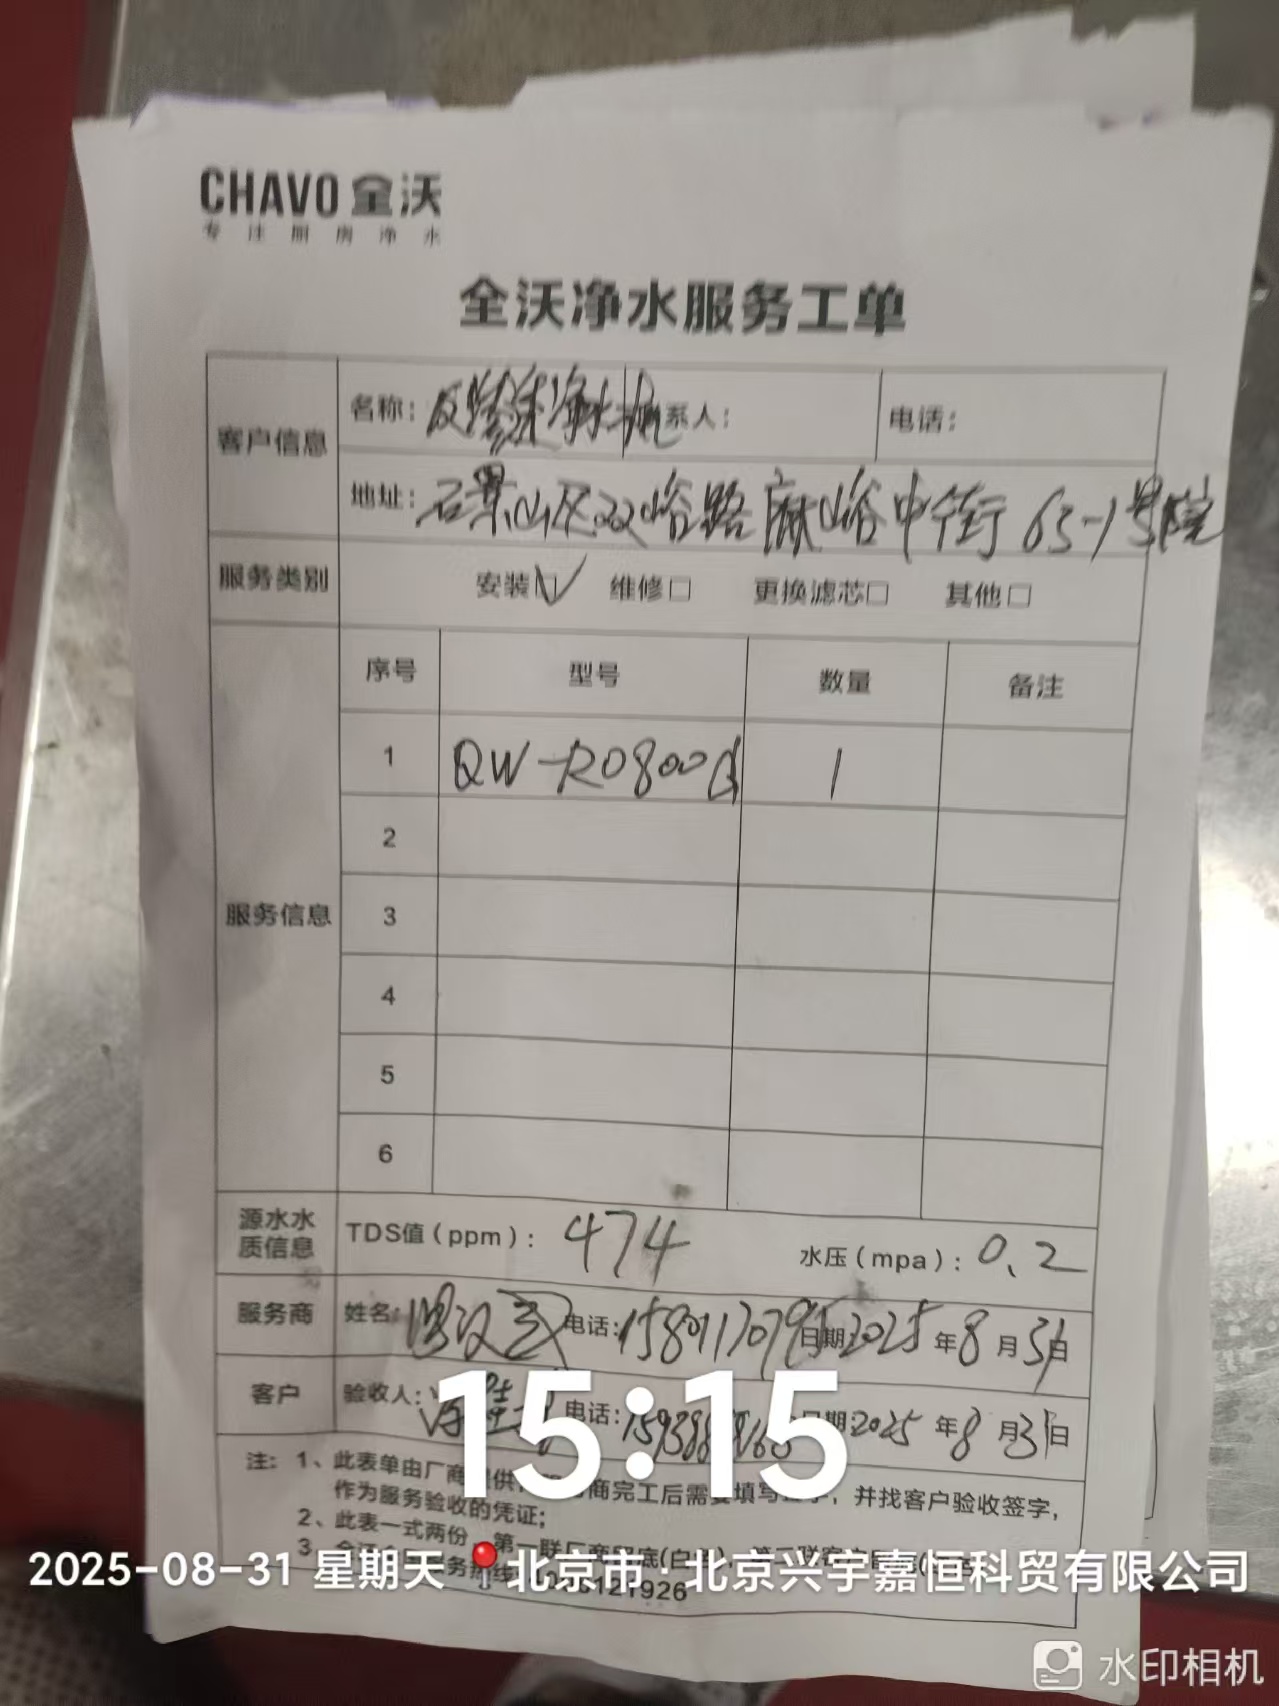 CHAVO 全沃
专注厨房净水
全沃净水服务工单
客户信息
名称：反渗透净水机 联系人： 电话：
地址：石景山区双峪路麻峪中街65-1号院
服务类别 安装☑ 维修□ 更换滤芯□ 其他□
服务信息
序号 型号 数量 备注
1 QW-RO800G 1
2
3
4
5
6
源水水质信息 TDS值（ppm）：474 水压（mpa）：0.2
服务商 姓名： 电话： 日期：2025年8月31日
客户 验收人： 电话： 日期：2025年8月31日
注：1、此表单由厂商提供，商完工后需要填写，并找客户验收签字，
作为服务验收的凭证；
2、此表一式两份，第一联厂商
3、
15:15
2025-08-31 星期天 北京市·北京兴宇嘉恒科贸有限公司
水印相机